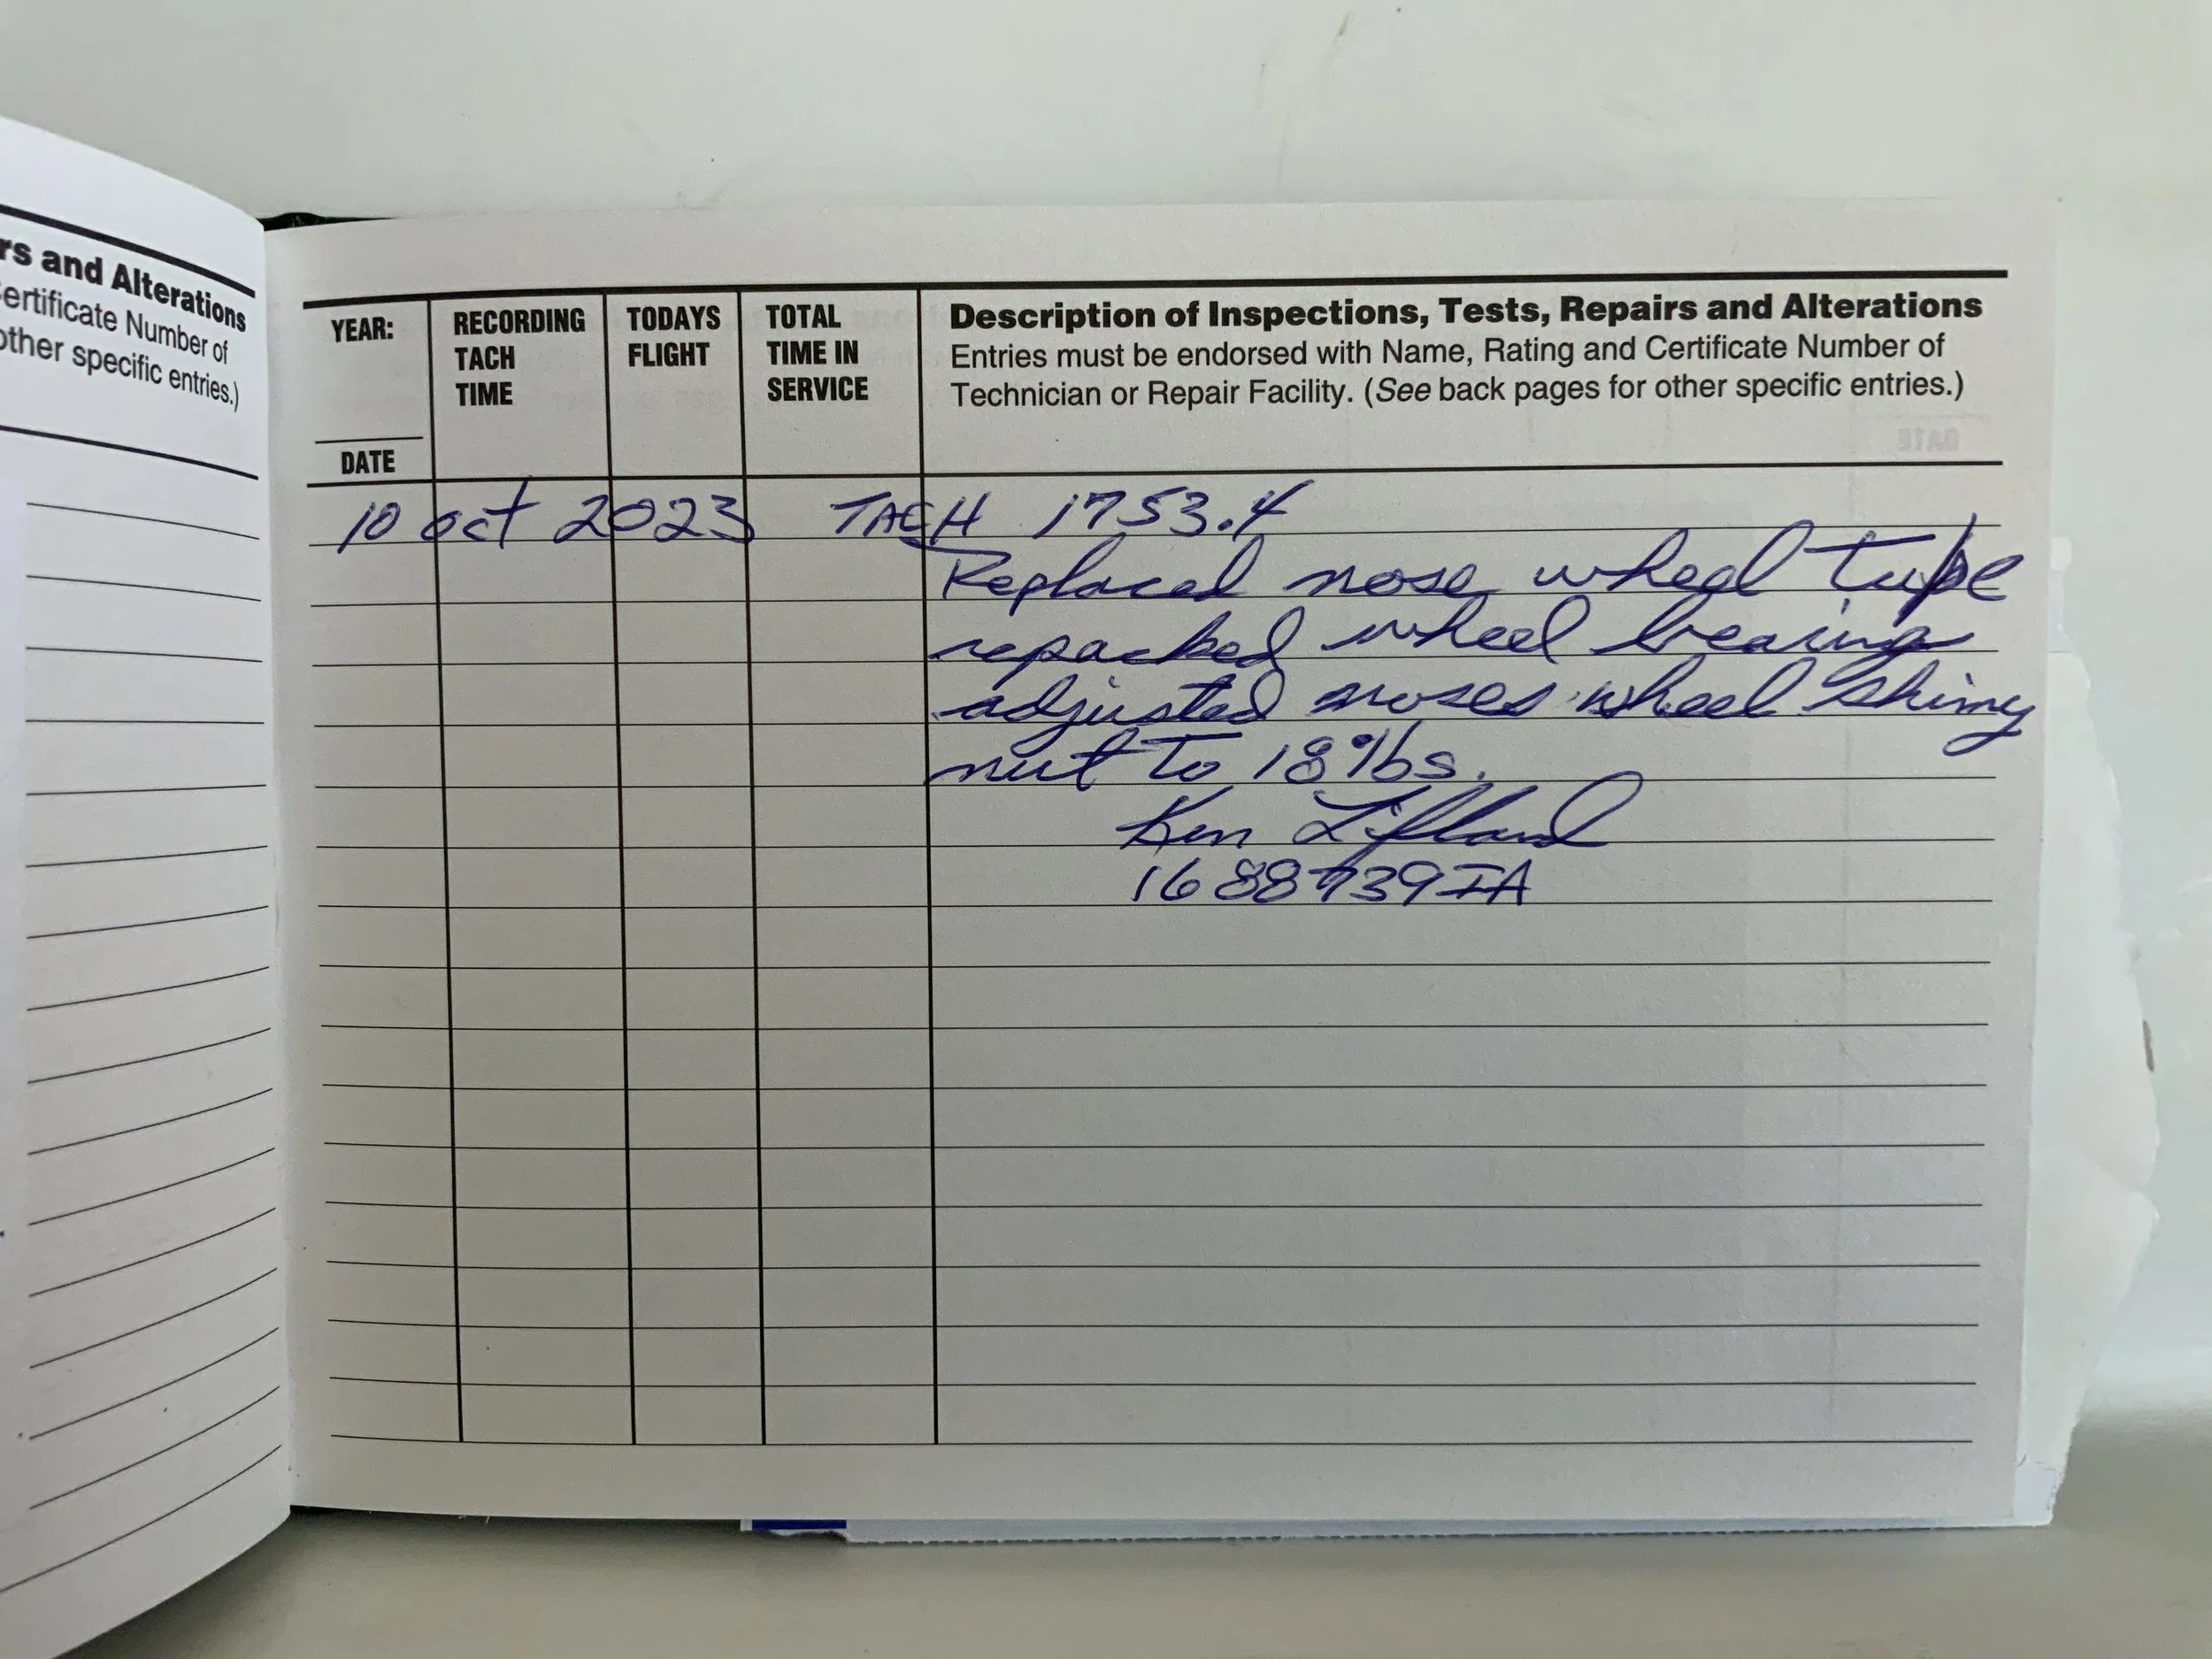 rs and Alterations
ertificate Number of
other specific entries.)
YEAR:
DATE
RECORDING
TACH
TIME
TODAYS
FLIGHT
TOTAL
TIME IN
SERVICE
Description of Inspections, Tests, Repairs and Alterations
Entries must be endorsed with Name, Rating and Certificate Number of
Technician or Repair Facility. (See back pages for other specific entries.)
10 oct 2023 TACH 1753.4
Replaced nose wheel tube
repacked wheel bearing
adjusted noses wheel shimy
nut to 18 lbs.
Ken Lifland
IA